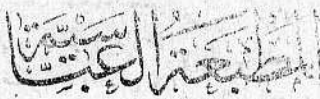 المطبعة العباسية